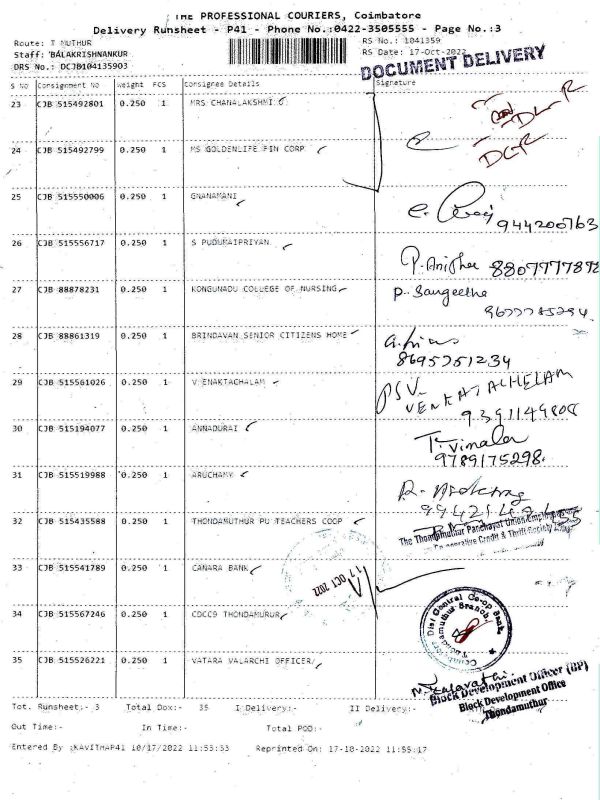 THE PROFESSIONAL COURIERS, Coimbatore
Delivery Runsheet - P41 - Phone No.:0422-3505555 - Page No.:3
Route: T MUTHUR
RS No.: 1041359
Staff: BALAKRISHNANKUR
RS Date: 17-Oct-2022
DRS No.: DCJB104135903
DOCUMENT DELIVERY
S NO Consignment No Weight PCS Consignee Details Signature
23 CJB 515492801 0.250 1 MRS CHANALAKSHMI
24 CJB 515492799 0.250 1 MS GOLDENLIFE FIN CORP
25 CJB 515550006 0.250 1 GNANAMANI
944200763
26 CJB 515556717 0.250 1 S PUDURAIPRIYAN
8807777892
27 CJB 88878231 0.250 1 KONGUNADU COLLEGE OF NURSING
P. Sangeetha
28 CJB 88861319 0.250 1 BRINDAVAN SENIOR CITIZENS HOME
8695751234
29 CJB 515561026 0.250 1 V ENAKTACHALAM
PSV. VENKATACHELAM
9391149808
30 CJB 515194077 0.250 1 ANNADURAI
T. Vimala
9789175298.
31 CJB 515519988 0.250 1 ARUCHAMY
32 CJB 515435588 0.250 1 THONDAMUTHUR PU TEACHERS COOP
The Thondamuthur Panchayat Union Employees
Co-operative Credit & Thrift Society
33 CJB 515541789 0.250 1 CANARA BANK
17 OCT 2022
34 CJB 515567246 0.250 1 CDCC9 THONDAMURUR
Coimbatore Dist Central Co-op Bank
Thondamuthur Branch
35 CJB 515526221 0.250 1 VATARA VALARCHI OFFICER
N. Kalavathi
Block Development Officer (BP)
Block Development Office
Thondamuthur
Tot. Runsheet:- 3 Total Dox:- 35 I Delivery:- II Delivery:-
Out Time:- In Time:- Total POD:-
Entered By :KAVITHAP41 10/17/2022 11:55:53 Reprinted On: 17-10-2022 11:55:17